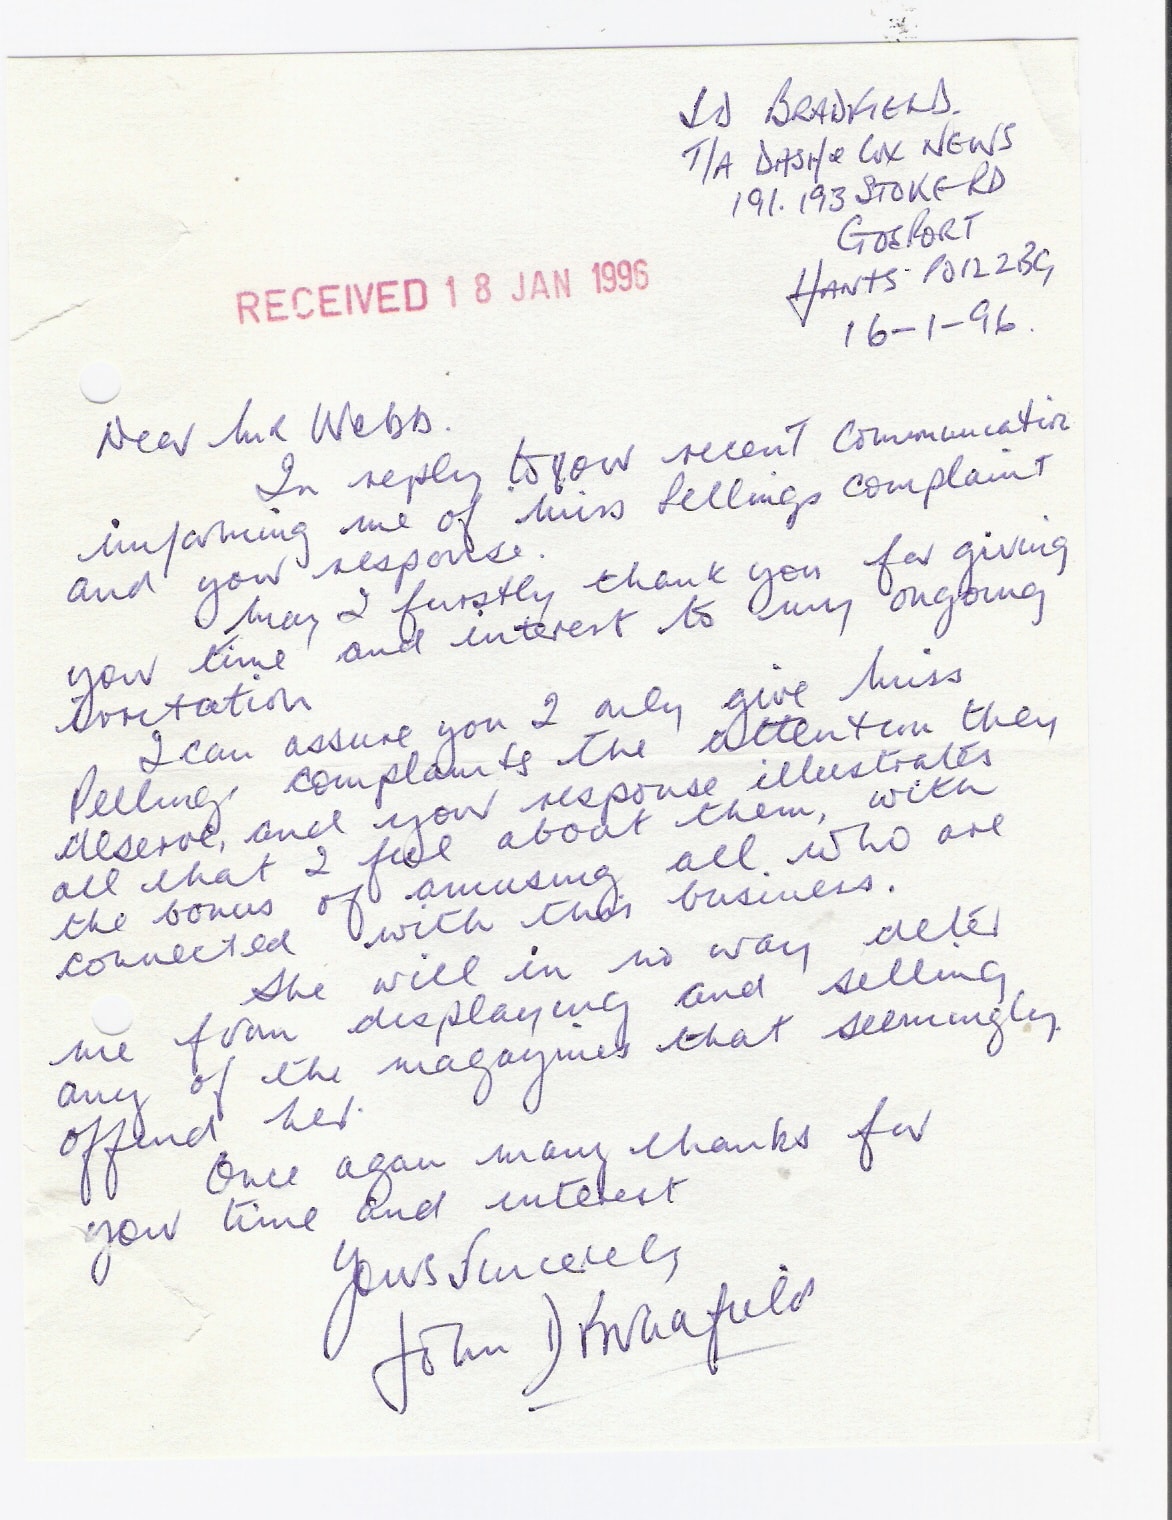 JD BRADFIELD.
T/A DASH & COX NEWS
191. 193 STOKE RD
GOSPORT
HANTS PO12 2BG
16-1-96.
RECEIVED 18 JAN 1996
Dear Mr Webb.
In reply to your recent communication
informing me of Miss Pellings complaint
and your response.
May I firstly thank you for giving
your time and interest to my ongoing
irritation
I can assure you I only give Miss
Pellings complaints the attention they
deserve, and your response illustrates
all that I feel about them, with
the bonus of amusing all who are
connected with this business.
She will in no way deter
me from displaying and selling
any of the magazines that seemingly
offend her.
Once again many thanks for
your time and interest
Yours Sincerely
John D Bradfield